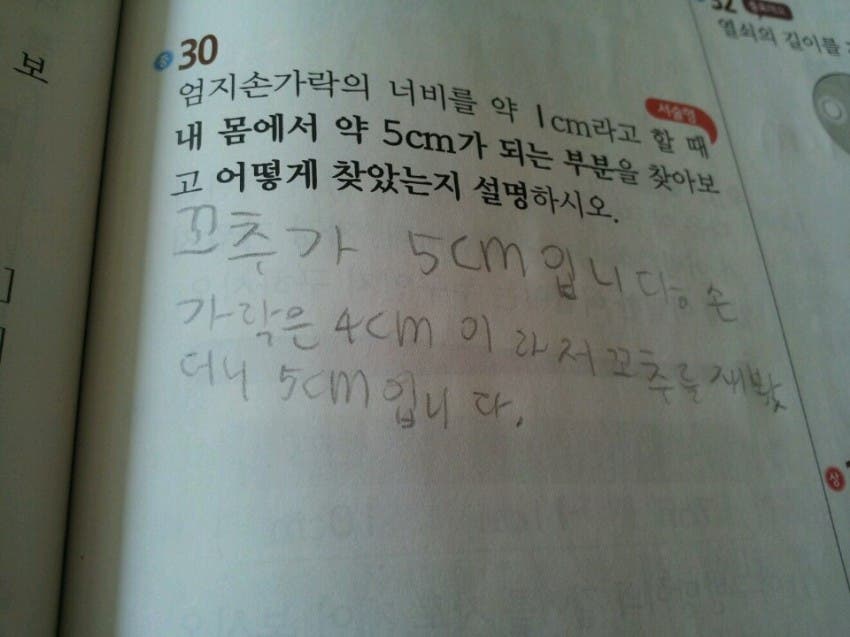 보
중 30
서술형
엄지손가락의 너비를 약 1cm라고 할 때
내 몸에서 약 5cm가 되는 부분을 찾아보
고 어떻게 찾았는지 설명하시오.
꼬추가 5cm입니다. 손
가락은 4cm 이라서 꼬추를 재봤
더니 5cm입니다.
]
32
열쇠의 길이를
상